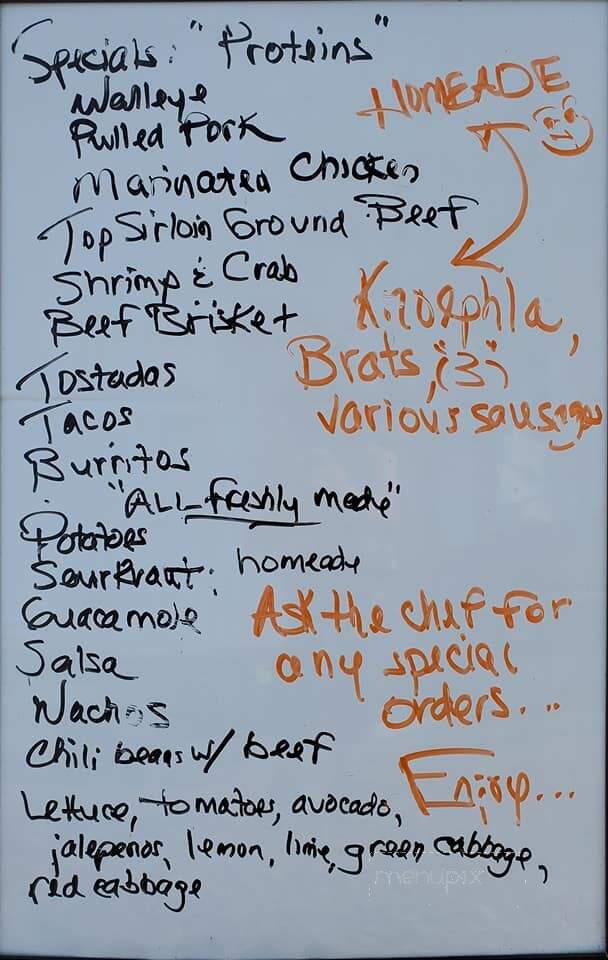 Specials: "Proteins"
Walleye
Pulled Pork
Marinated Chicken
Top Sirloin Ground Beef
Shrimp & Crab
Beef Brisket
Tostadas
Tacos
Burritos
"ALL freshly made"
Potatoes
SourKraut: homeade
Guacamole
Salsa
Nachos
Chili beans w/ beef
Lettuce, tomatoes, avocado,
jalepenos, lemon, lime, green cabbage,
red cabbage
HOMEADE
Knoephla,
Brats, "(3)"
various sausages
Ask the chef for
any special
orders...
Enjoy...
menupix